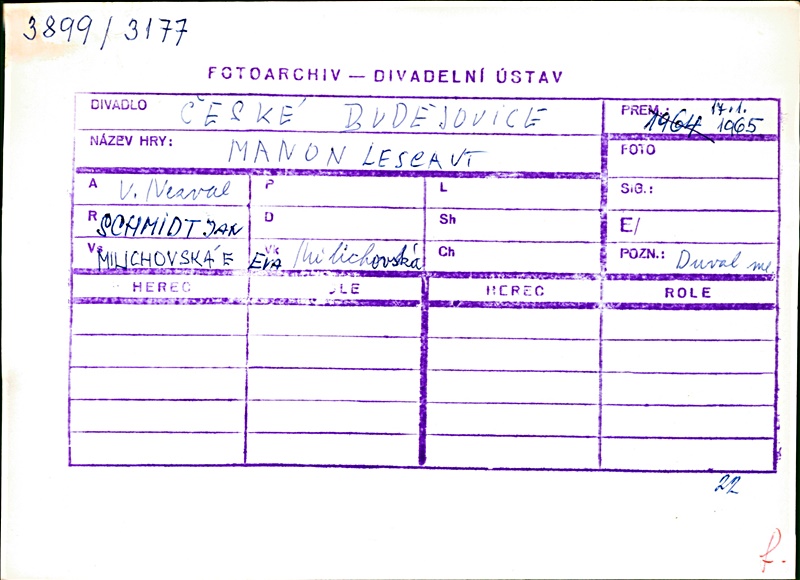 3899/3177
FOTOARCHIV — DIVADELNÍ ÚSTAV
DIVADLO ČESKÉ BUDĚJOVICE
PREM.: 17.1. 1964 1965
NÁZEV HRY: MANON LESCAUT
FOTO
A V. Nezval P L SIG.:
R SCHMIDT JAN D Sh E/
Vs MILICHOVSKÁ E Vk EVA Milichovská Ch POZN.: Duval
HEREC ROLE HEREC ROLE
22
f.